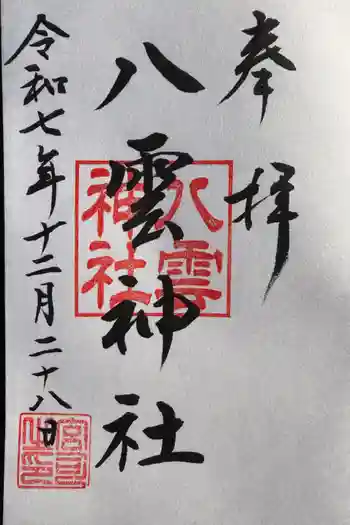 奉拝
八雲神社
八雲神社
令和七年十二月二十八日
宮司之印